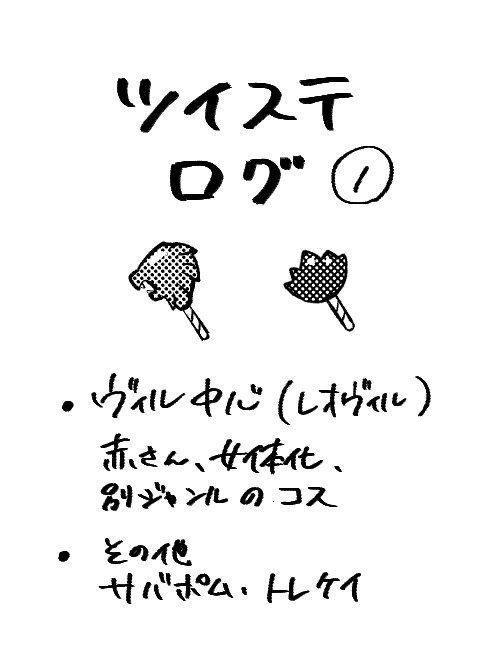 ツイステ
ログ①
・ヴィル中心(レオヴィル)
赤さん、女体化、
別ジャンルのコス
・その他
サバポム・トレケイ